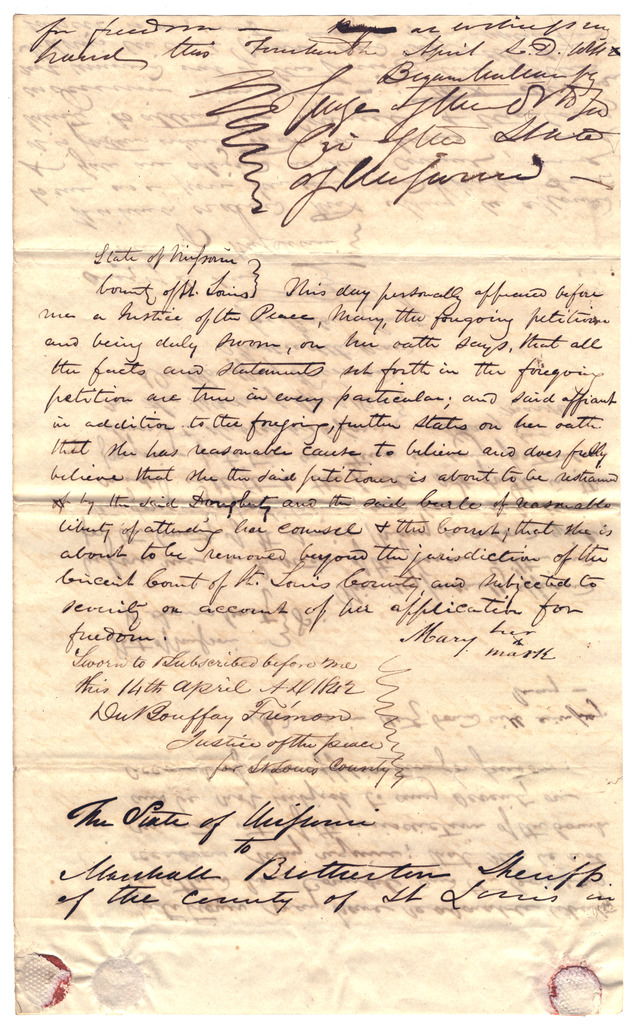 for freedom — as witness my
hand, this Fourteenth April A.D. 1842
Bryan Mullanphy
Judge of the 8th Jud
Cir of the State
of Missouri —
State of Missouri
County of St. Louis } This day personally appeared before
me a Justice of the Peace, Mary, the foregoing petitioner
and being duly sworn, on her oath says, that all
the facts and statements set forth in the foregoing
petition are true in every particular; and said affiant
in addition to the foregoing, further states on her oath
that she has reasonable cause to believe and does fully
believe that she the said petitioner is about to be restrained
by the said Dougherty and the said of reasonable
liberty of attending her counsel & the Court; that she is
about to be removed beyond the jurisdiction of the
Circuit Court of St. Louis County and subjected to
severity on account of her application for
freedom.
Mary her x mark
Sworn to & Subscribed before me
this 14th April A D 1842
DuBouffay Fremon
Justice of the peace
for St Louis County
The State of Missouri
to
Marshall Brotherton Sheriff
of the county of St Louis in